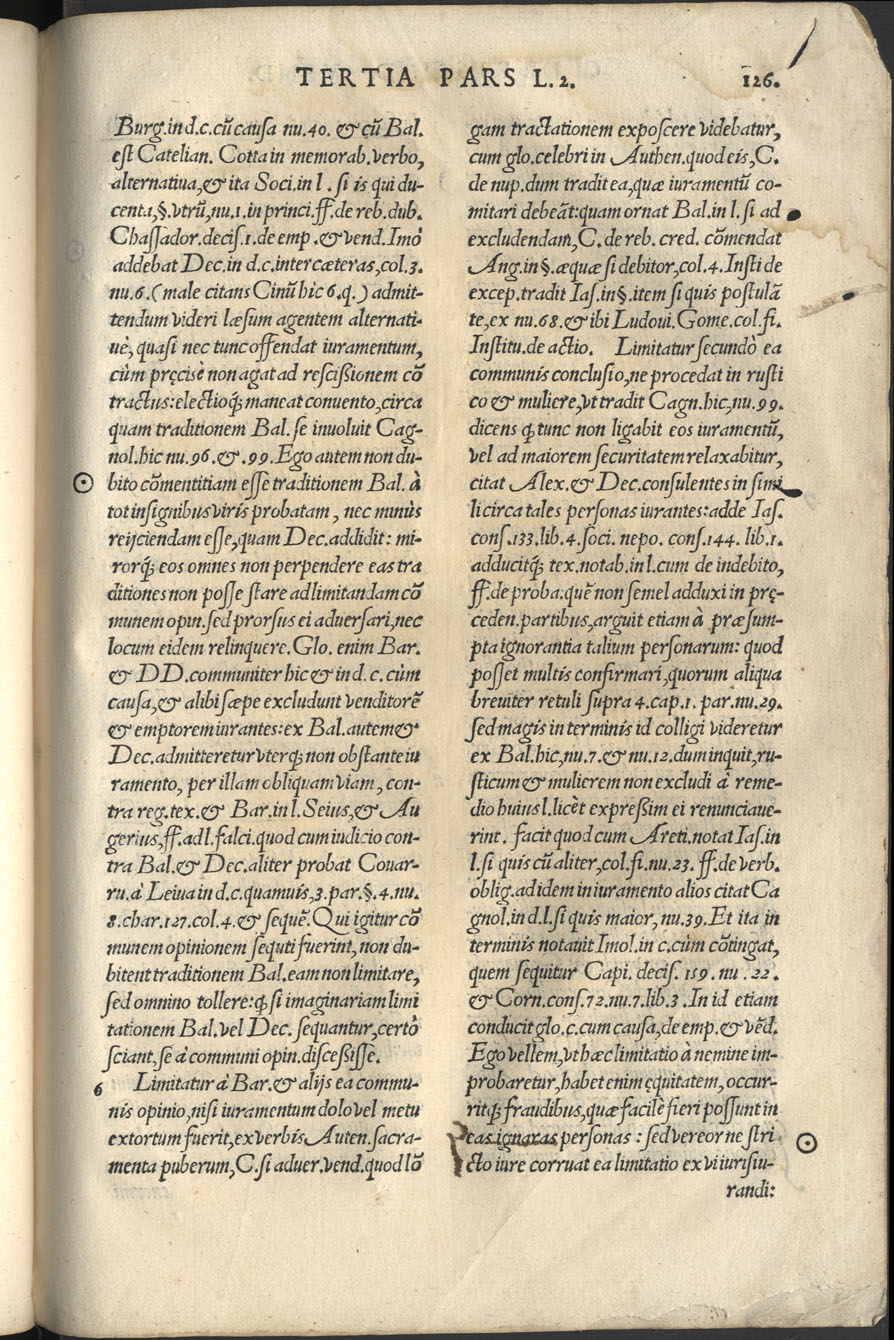 TERTIA PARS L. 2. 126.
Burg.in d.c.cũ causa nu.40. & cũ Bal.
est Catelian. Cotta in memorab.verbo,
alternatiua,& ita Soci.in l . si is qui du-
centa,§.vtrũ,nu.1.in princi.ff.de reb.dub.
Chassador.decis.1.de emp .& vend.Imò
addebat Dec.in d.c.inter cæteras,col.3.
nu.6.(male citans Cinũ hic 6.q.) admit-
tendum videri læsum agentem alternati-
uè, quasi nec tunc offendat iuramentum,
cùm pręcisè non agat ad rescißionem cõ
tractus:electioq́; maneat conuento,circa
quam traditionem Bal.se inuoluit Cag-
nol.hic nu.96.&.99.Ego autem non du-
bito cõmentitiam esse traditionem Bal. à
tot insignibus viris probatam , nec minùs
reijciendam esse,quam Dec.addidit: mi-
rorq́; eos omnes non perpendere eas tra
ditiones non posse stare ad limitandam cõ
munem opin.sed prorsus ei aduersari,nec
locum eidem relinquere.Glo. enim Bar.
& DD.communiter hic & in d. c. cùm
causa,& alibi sæpe excludunt venditorẽ
& emptorem iurantes:ex Bal.autem &
Dec.admitteretur vterq; non obstante iu
ramento, per illam obliquam viam, con-
tra reg.tex.& Bar.in l.Seius,& Au
gerius,ff.ad l.falci.quod cum iudicio con-
tra Bal.& Dec.aliter probat Couar-
ru.à Leiua in d.c.quamuis,3.par.§.4.nu.
8.char.127.col.4.& sequẽ.Qui igitur cõ
munem opinionem sequti fuerint,non du-
bitent traditionem Bal.eam non limitare,
sed omnino tollere:q̃ si imaginariam limi
tationem Bal.vel Dec. sequantur,certò
sciant,se à communi opin.discessisse.
6 Limitatur à Bar.& alijs ea commu-
nis opinio,nisi iuramentum dolo vel metu
extortum fuerit,ex verbis Auten.sacra-
menta puberum,C.si aduer.vend.quod lõ
gam tractationem exposcere videbatur,
cum glo.celebri in Authen.quod eis, C.
de nup.dum tradit ea,quæ iuramentũ co-
mitari debeãt:quam ornat Bal.in l.si ad
excludendam,C.de reb. cred. cõmendat
Ang.in §.æquæ si debitor,col.4.Insti de
excep.tradit Ias.in §.item si quis postulã
te,ex nu.68.& ibi Ludoui.Gome.col.fi.
Institu.de actio. Limitatur secundò ea
communis conclusio,ne procedat in rusti
co & muliere,vt tradit Cagn.hic,nu.99.
dicens q̃ tunc non ligabit eos iuramentũ,
vel ad maiorem securitatem relaxabitur,
citat Alex.& Dec.consulentes in simi
li circa tales personas iurantes:adde Ias.
cons.133.lib.4.soci. nepo. cons.144. lib.1.
adducitq́; tex.notab.in l.cum de indebito,
ff.de proba.quẽ non semel adduxi in prę-
ceden.partibus,arguit etiam à præsum-
pta ignorantia talium personarum: quod
posset multis confirmari,quorum aliqua
breuiter retuli supra 4.cap.1. par.nu.29.
sed magis in terminis id colligi videretur
ex Bal.hic,nu.7.& nu.12.dum inquit,ru-
sticum & mulierem non excludi à reme-
dio huius l.licèt expressim ei renunciaue-
rint . facit quod cum Areti.notat Ias.in
l.si quis cũ aliter,col.fi.nu.23. ff.de verb.
oblig.ad idem in iuramento alios citat Ca
gnol.in d.l.si quis maior, nu.39.Et ita in
terminis notauit Imol.in c.cùm cõtingat,
quem sequitur Capi. decis. 159. nu . 22 .
& Corn.cons.72.nu.7.lib.3 .In id etiam
conducit glo.c.cum causa,de emp.& vẽd.
Ego vellem,vt hæc limitatio à nemine im-
probaretur,habet enim ęquitatem,occur-
ritq́; fraudibus,quæ facilè fieri possunt in
eas ignaras personas : sed vereor ne stri
cto iure corruat ea limitatio ex vi iurisiu-
randi: